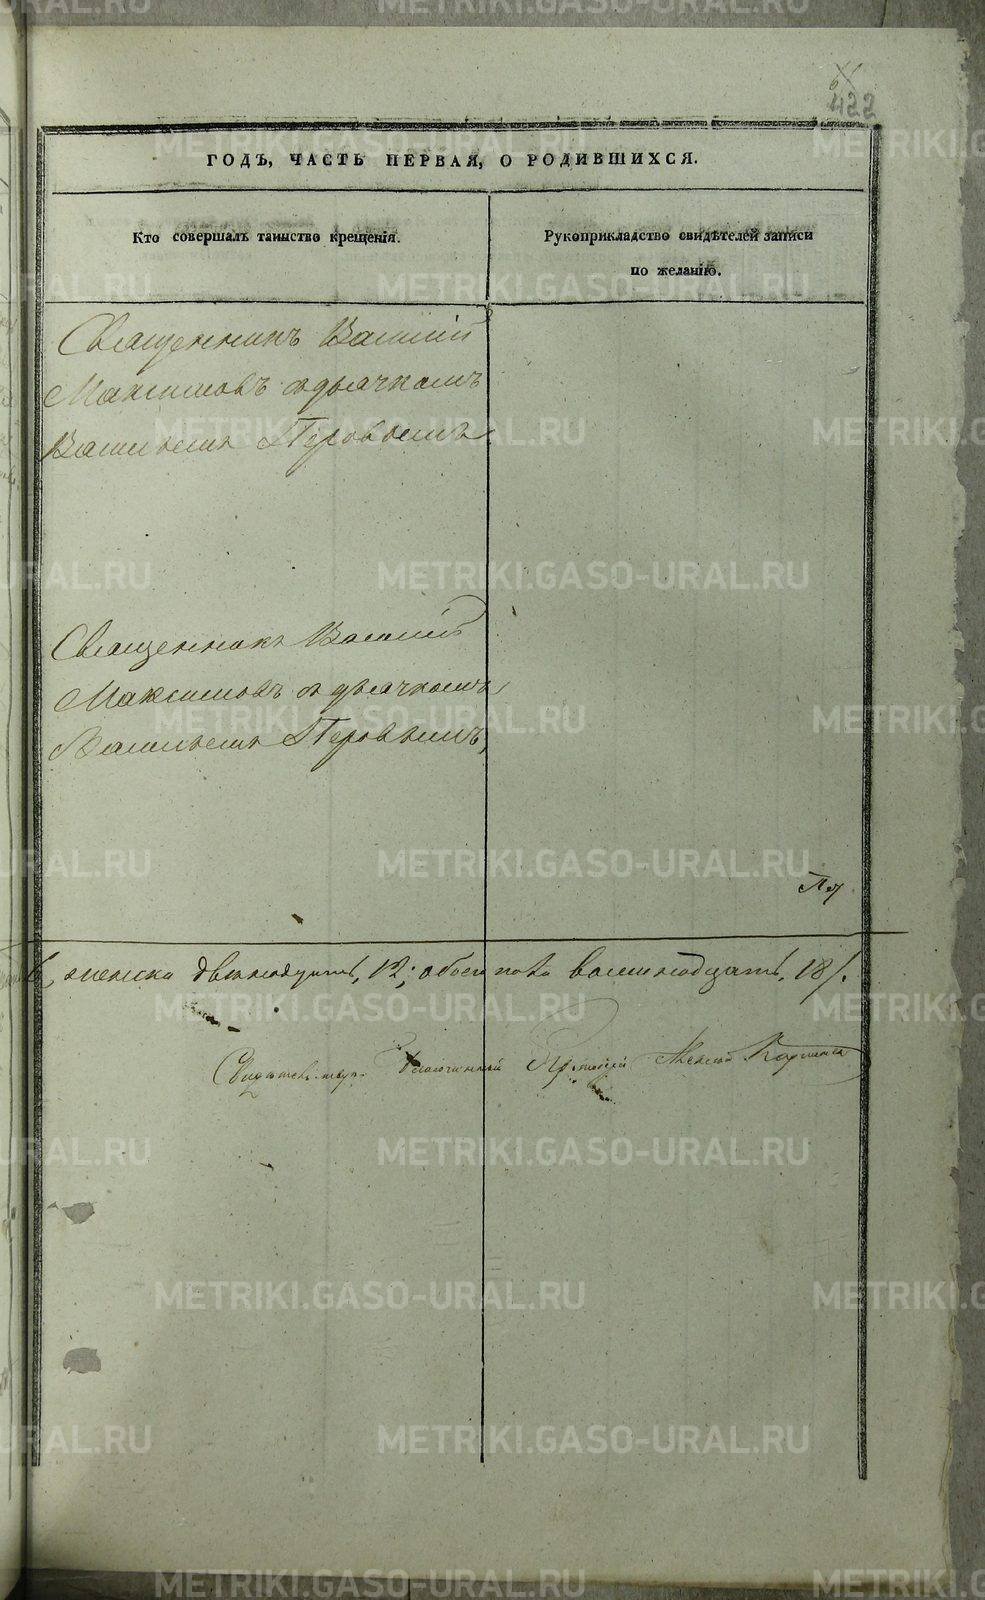 422
ГОДЪ, ЧАСТЬ ПЕРВАЯ, О РОДИВШИХСЯ.
Кто совершалъ таинство крещенія.
Рукоприкладство свидѣтелей записи
по желанію.
Священникъ Василій
Максимовъ съ дьячкомъ
Васильемъ Перовымъ
Священникъ Василій
Максимовъ съ дьячкомъ
Васильемъ Перовымъ,
женска двѣнадцать, 12; обоего пола восемнадцать, 18.
Благочинный
METRIKI.GASO-URAL.RU